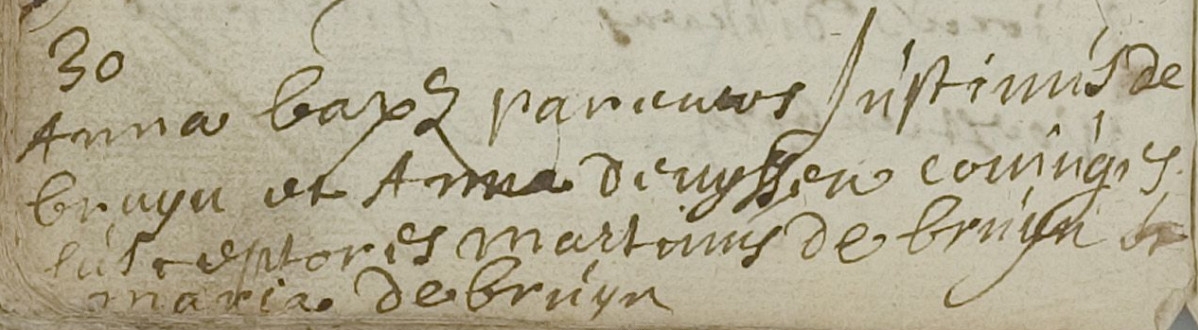 30
Anna bapt parentes Justinus de
bruyn et Anna Denyssen coniuges
susceptores martinus de bruyn et
maria de bruyn